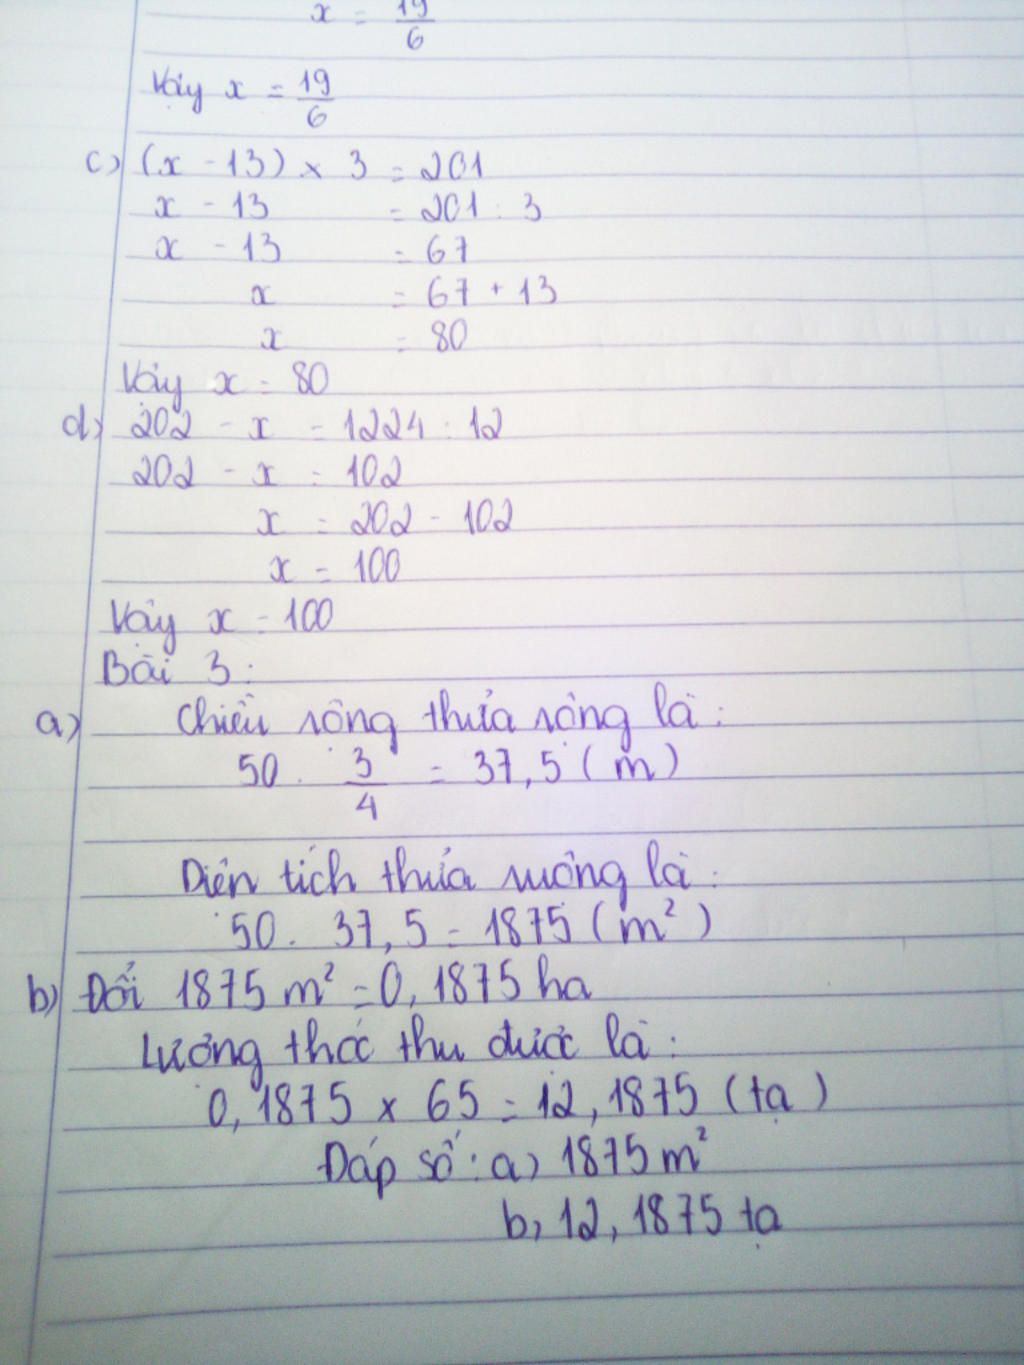 x = 19/6
Vậy x = 19/6
c) (x - 13) × 3 = 201
x - 13 = 201 : 3
x - 13 = 67
x = 67 + 13
x = 80
Vậy x = 80
d) 202 - x = 1224 : 12
202 - x = 102
x = 202 - 102
x = 100
Vậy x = 100
Bài 3 :
a) Chiều rộng thửa rộng là :
50 . 3/4 = 37,5 (m)
Diện tích thửa ruộng là :
50 . 37,5 = 1875 (m²)
b) Đổi 1875 m² = 0,1875 ha
Lượng thóc thu được là :
0,1875 × 65 = 12,1875 (tạ)
Đáp số : a) 1875 m²
b, 12,1875 tạ